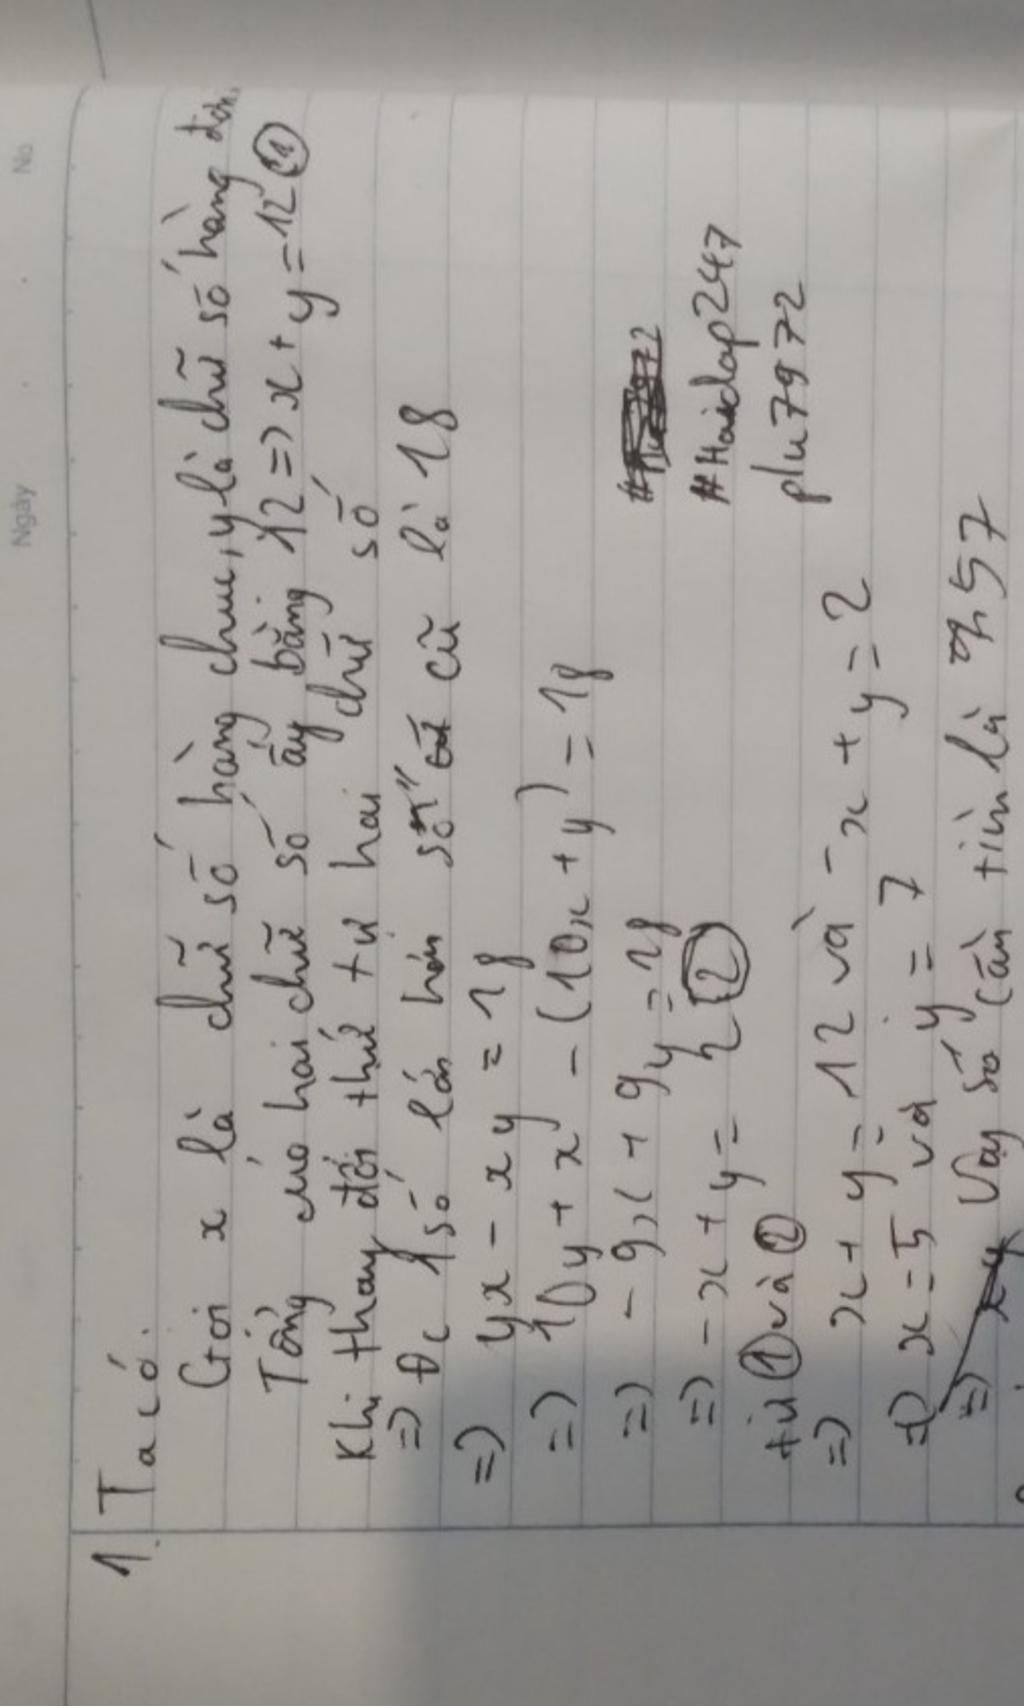 No
Ngày
1. Ta có:
Gọi x là chữ số hàng chục, y là chữ số hàng đơn.
Tổng của hai chữ số ấy bằng 12 => x + y = 12 (1)
Khi thay đổi thứ tự hai chữ số
=> Đc 1 số lớn hơn số cũ là 18
=> yx - xy = 18
=> 10y + x - (10x + y) = 18
=> - 9x + 9y = 18
=> - x + y = 2 (2)
#Hoidap247
plu7972
từ (1) và (2)
=> x + y = 12 và - x + y = 2
=> x = 5 và y = 7
=> Vậy số cần tìm là 57